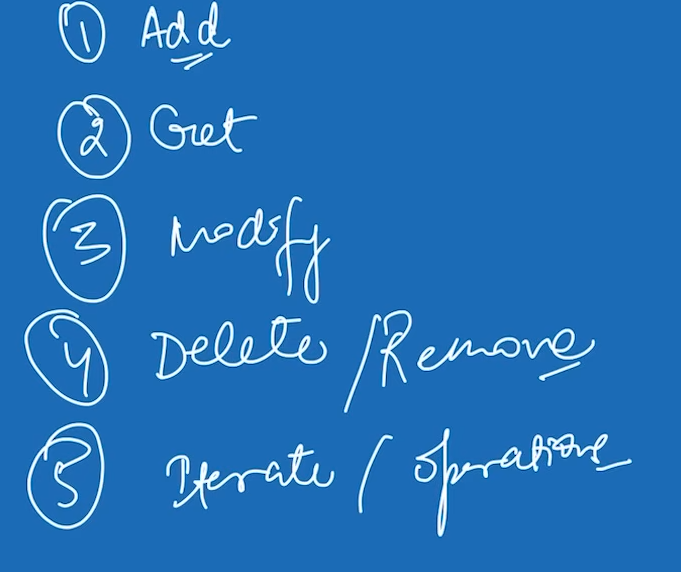 1 Add
2 Get
3 Modify
4 Delete / Remove
5 Iterate / Operations